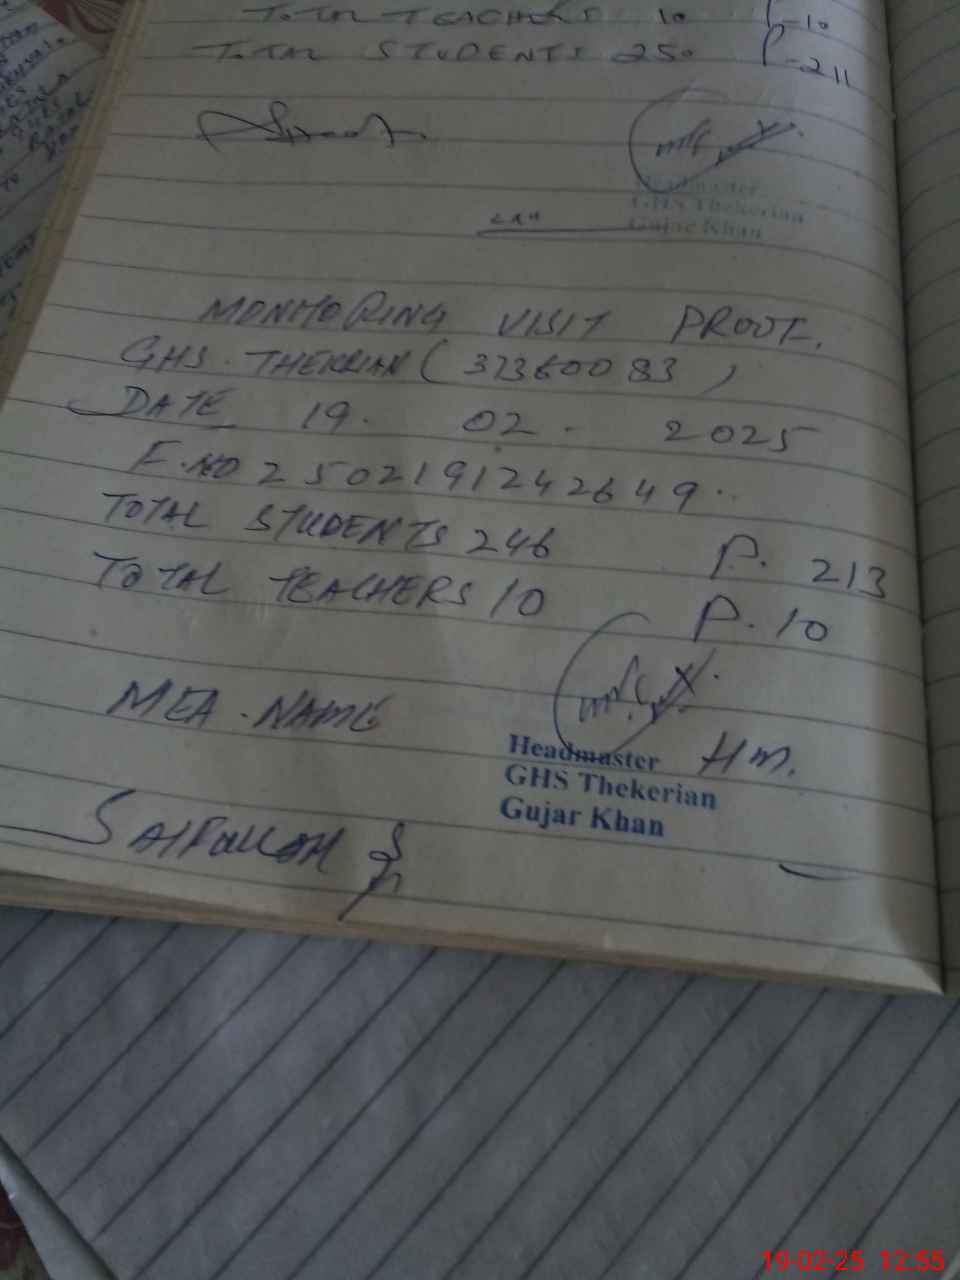 TOTAL TEACHERS 10 P-10
TOTAL STUDENTS 250 P-211
Headmaster
GHS Thekerian
Gujar Khan
MONITORING VISIT PROOF.
GHS. THEKRIAN ( 37360083 )
DATE 19. 02. 2025
F.NO 2502191242649.
TOTAL STUDENTS 246 P. 213
TOTAL TEACHERS 10 P. 10
MEA. NAME
Headmaster HM.
GHS Thekerian
Gujar Khan
SAIFULLAH
19-02-25 12:55